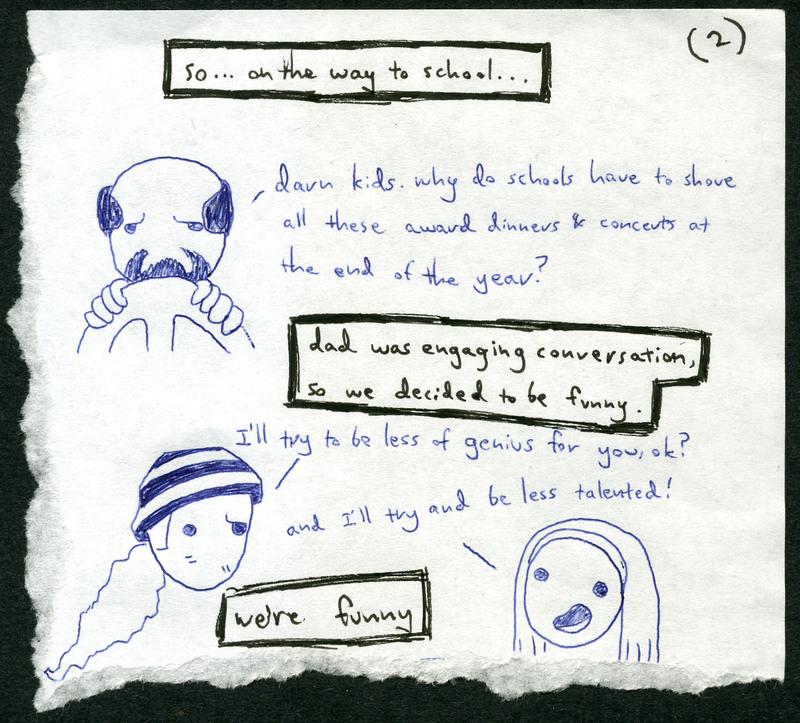 (2)
so... on the way to school...
darn kids. why do schools have to shove
all these award dinners & concerts at
the end of the year?
dad was engaging conversation,
so we decided to be funny.
I'll try to be less of genius for you, ok?
and I'll try and be less talented!
we're funny